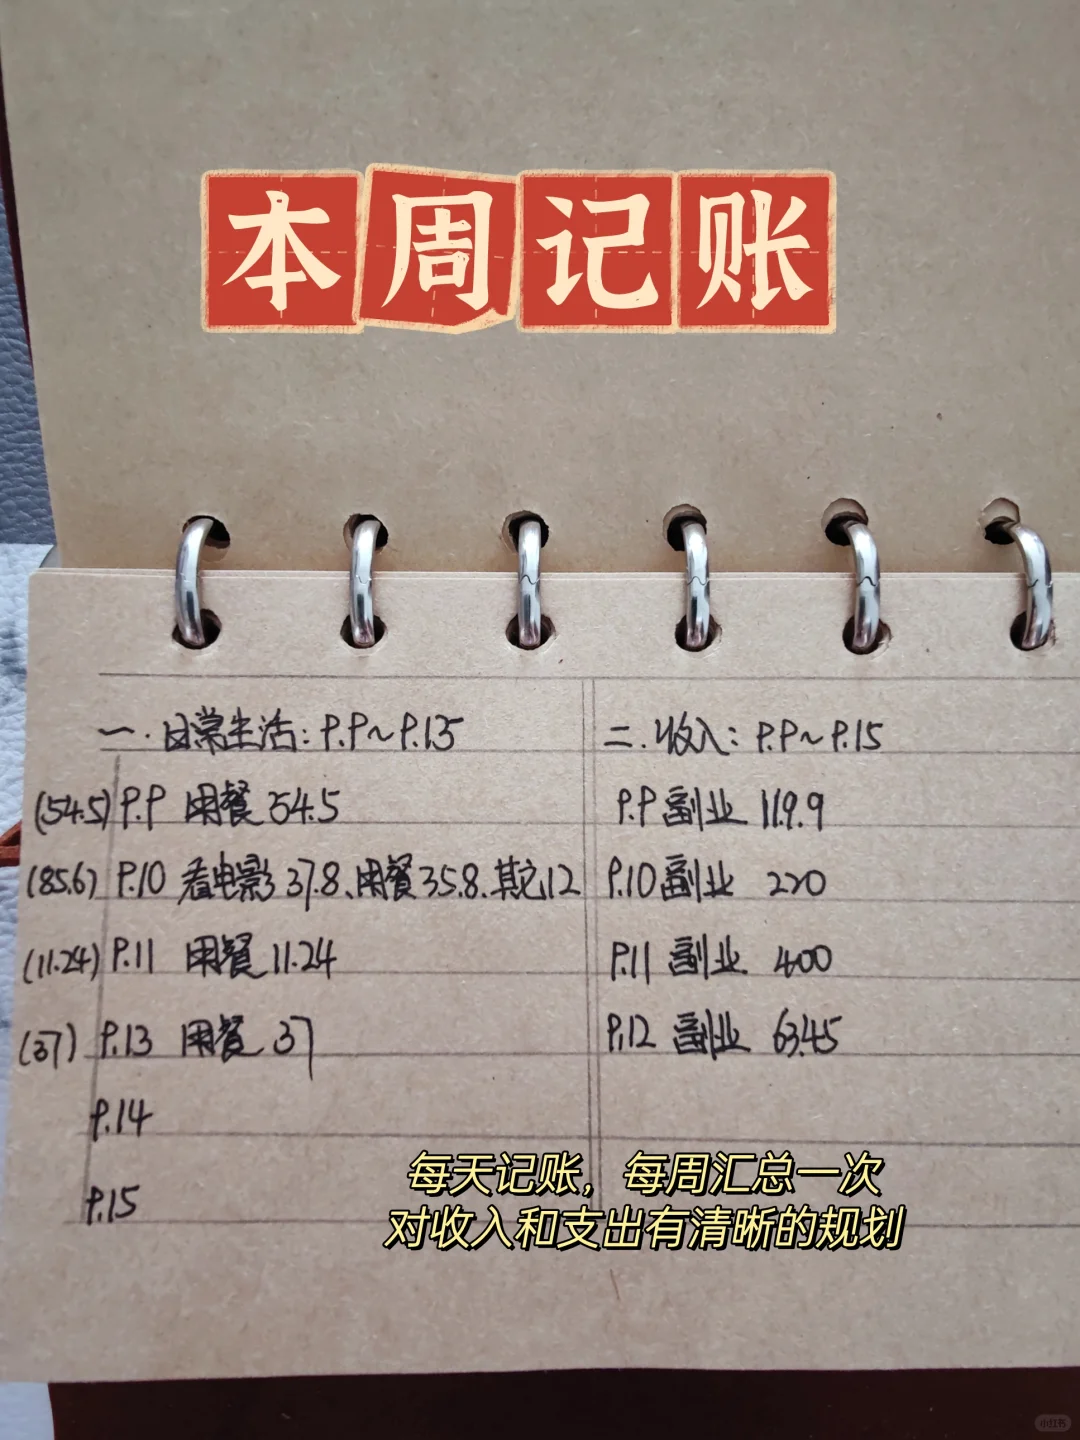 本周记账
一.日常生活:9.9~9.15
(54.5) 9.9 用餐 54.5
(85.6) 9.10 看电影 37.8、用餐 35.8、其它12
(11.24) 9.11 用餐 11.24
(37) 9.13 用餐 37
9.14
9.15
二.收入:9.9~9.15
9.9 副业 119.9
9.10 副业 220
9.11 副业 400
9.12 副业 63.45
每天记账，每周汇总一次
对收入和支出有清晰的规划
小红书